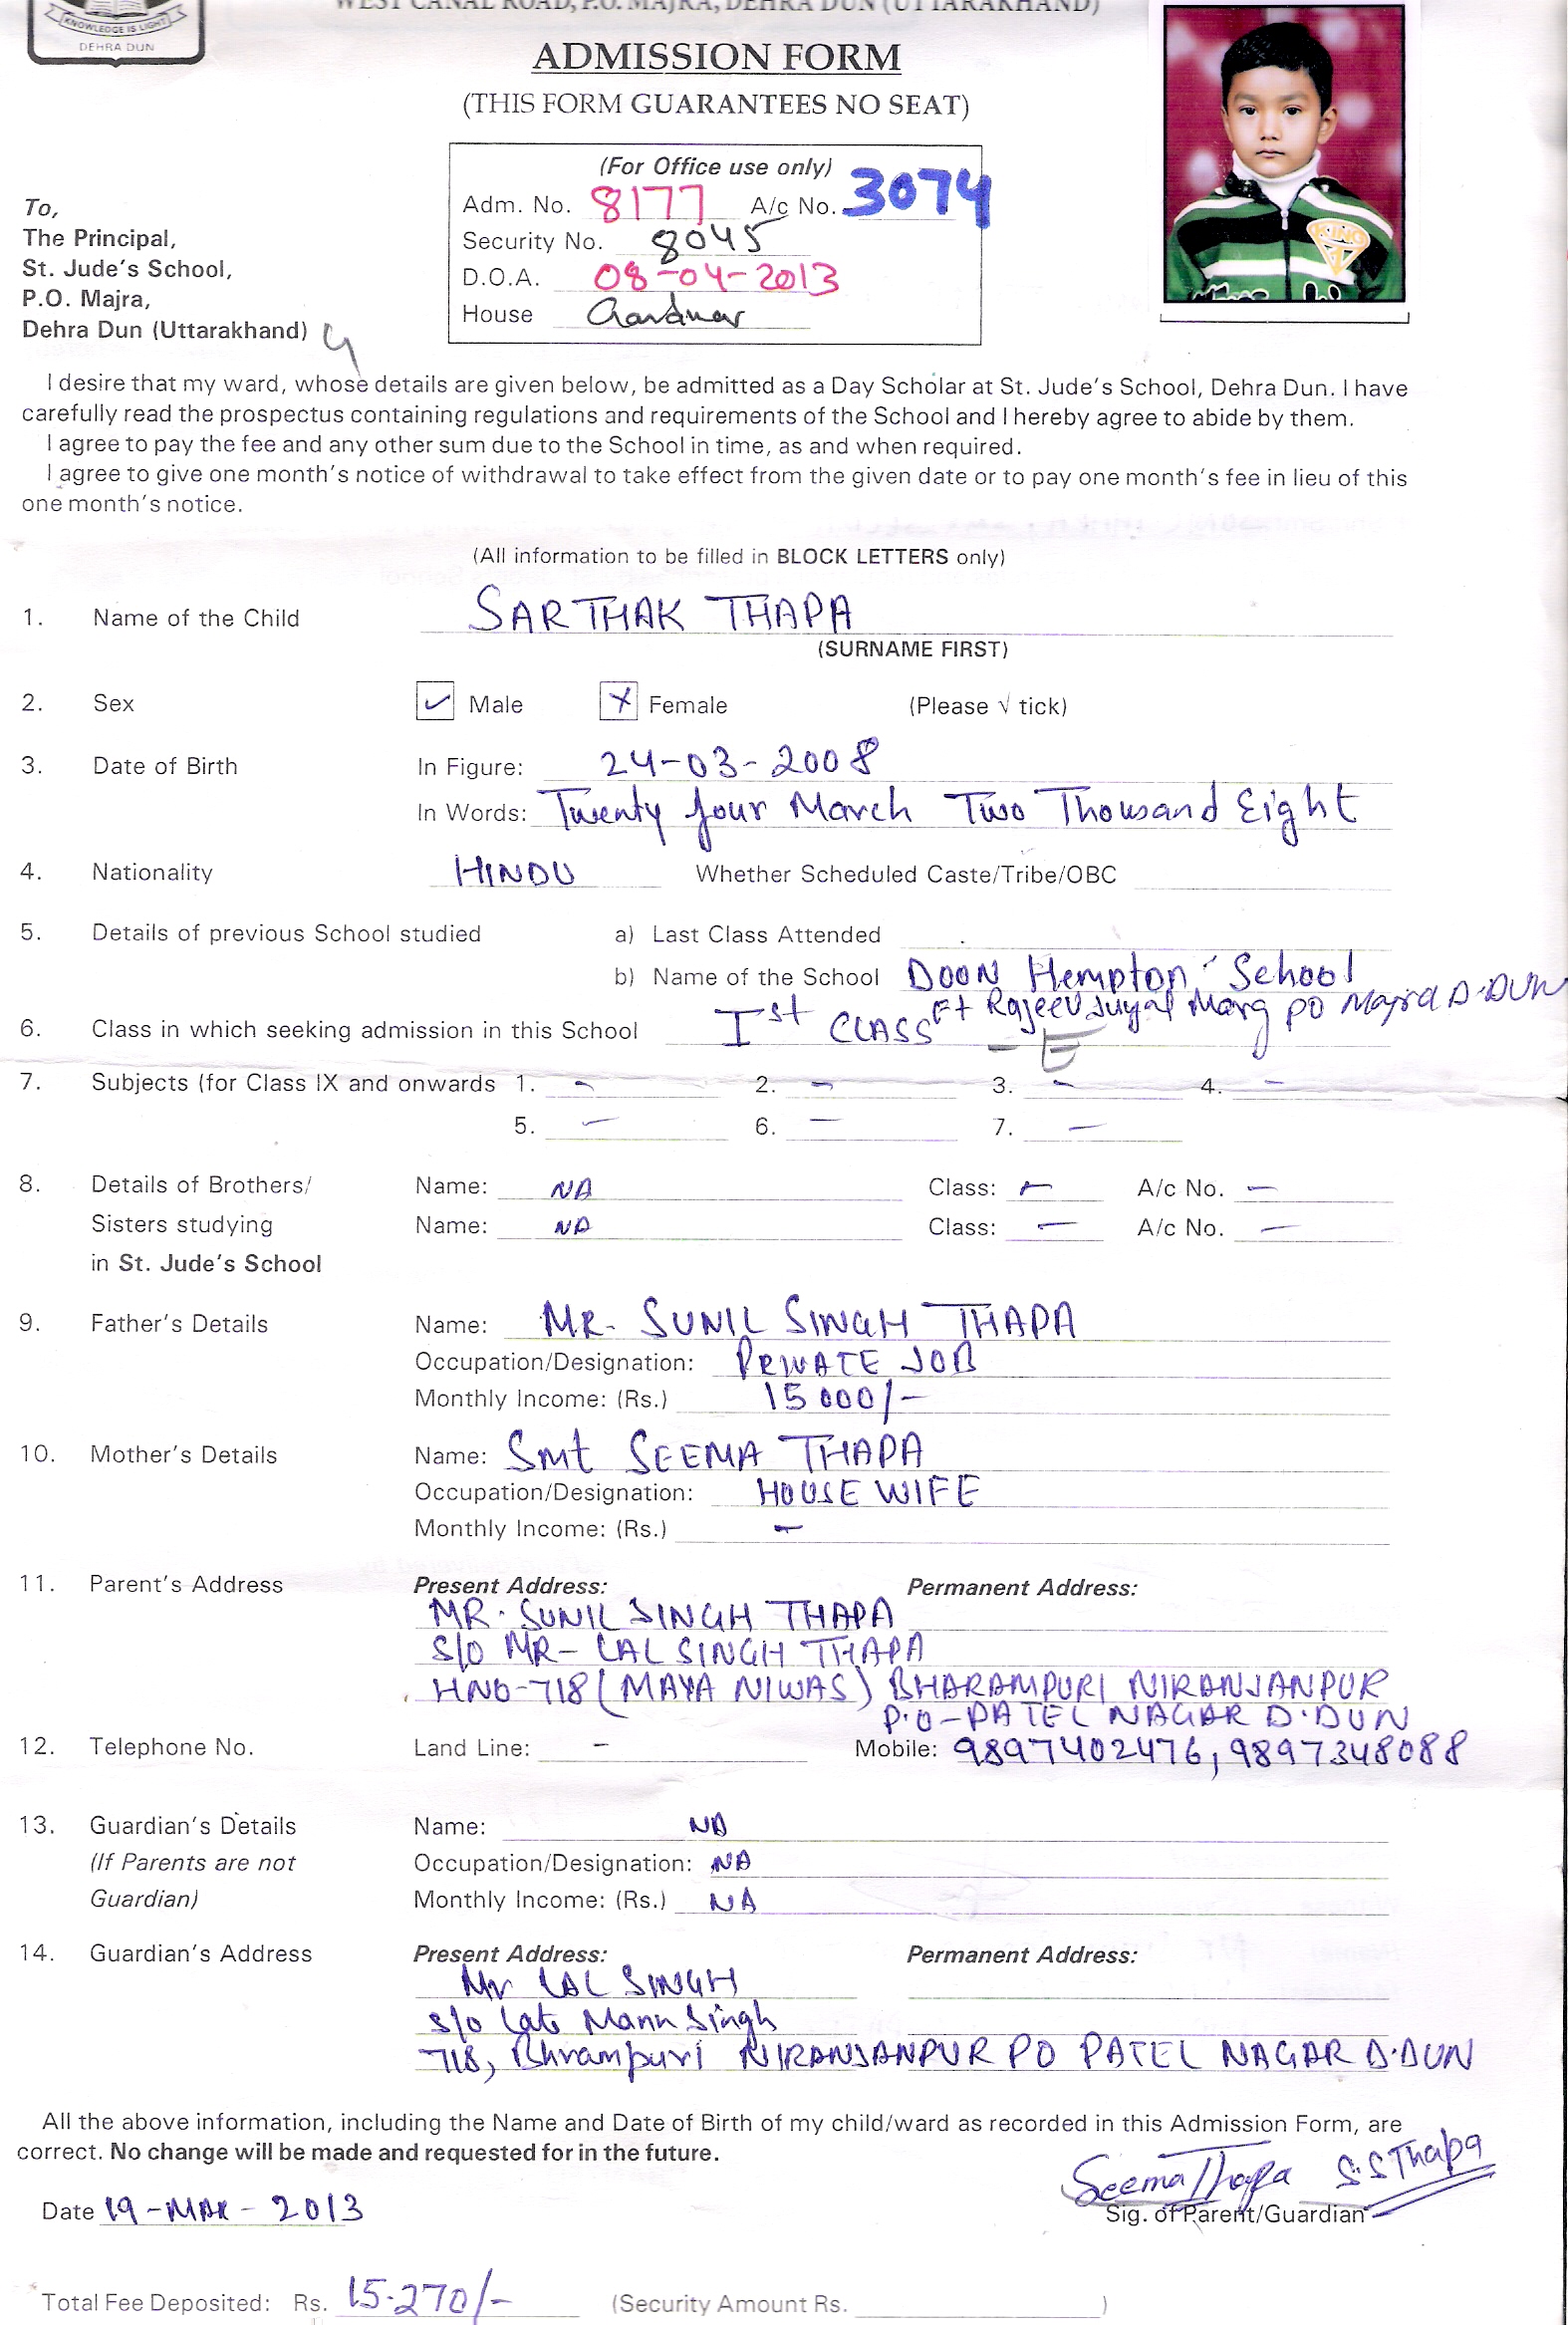 KNOWLEDGE IS LIGHT
DEHRA DUN
WEST CANAL ROAD, P.O. MAJRA, DEHRA DUN (UTTARAKHAND)
ADMISSION FORM
(THIS FORM GUARANTEES NO SEAT)
(For Office use only)
Adm. No. 8177 A/c No. 3074
Security No. 8045
D.O.A. 08-04-2013
House
To,
The Principal,
St. Jude's School,
P.O. Majra,
Dehra Dun (Uttarakhand)
I desire that my ward, whose details are given below, be admitted as a Day Scholar at St. Jude's School, Dehra Dun. I have
carefully read the prospectus containing regulations and requirements of the School and I hereby agree to abide by them.
I agree to pay the fee and any other sum due to the School in time, as and when required.
I agree to give one month's notice of withdrawal to take effect from the given date or to pay one month's fee in lieu of this
one month's notice.
(All information to be filled in BLOCK LETTERS only)
1. Name of the Child SARTHAK THAPA
(SURNAME FIRST)
2. Sex ✓ Male X Female (Please √ tick)
3. Date of Birth In Figure: 24-03-2008
In Words: Twenty four March Two Thousand Eight
4. Nationality HINDU Whether Scheduled Caste/Tribe/OBC
5. Details of previous School studied a) Last Class Attended
b) Name of the School DOON Hempton School
Rajeev Juyal Marg PO Majra D.DUN
6. Class in which seeking admission in this School Ist CLASS - E
7. Subjects (for Class IX and onwards 1. - 2. - 3. - 4. -
5. - 6. - 7. -
8. Details of Brothers/ Name: NA Class: - A/c No. -
Sisters studying Name: NA Class: - A/c No. -
in St. Jude's School
9. Father's Details Name: MR. SUNIL SINGH THAPA
Occupation/Designation: PRIVATE JOB
Monthly Income: (Rs.) 15000/-
10. Mother's Details Name: Smt SEEMA THAPA
Occupation/Designation: HOUSE WIFE
Monthly Income: (Rs.) -
11. Parent's Address Present Address: Permanent Address:
MR. SUNIL SINGH THAPA
S/O MR- LAL SINGH THAPA
HNO-718 (MAYA NIWAS) BHARAMPURI NIRANJANPUR
P.O-PATEL NAGAR D.DUN
12. Telephone No. Land Line: - Mobile: 9897402476, 9897348088
13. Guardian's Details Name: NA
(If Parents are not Occupation/Designation: NA
Guardian) Monthly Income: (Rs.) NA
14. Guardian's Address Present Address: Permanent Address:
Mr LAL SINGH
S/o Late Mann Singh
718, Bhrampuri NIRANJANPUR PO PATEL NAGAR D.DUN
All the above information, including the Name and Date of Birth of my child/ward as recorded in this Admission Form, are
correct. No change will be made and requested for in the future.
Seema Thapa S.S Thapa
Date 19-MAR-2013 Sig. of Parent/Guardian
Total Fee Deposited: Rs. 15.270/- (Security Amount Rs. )